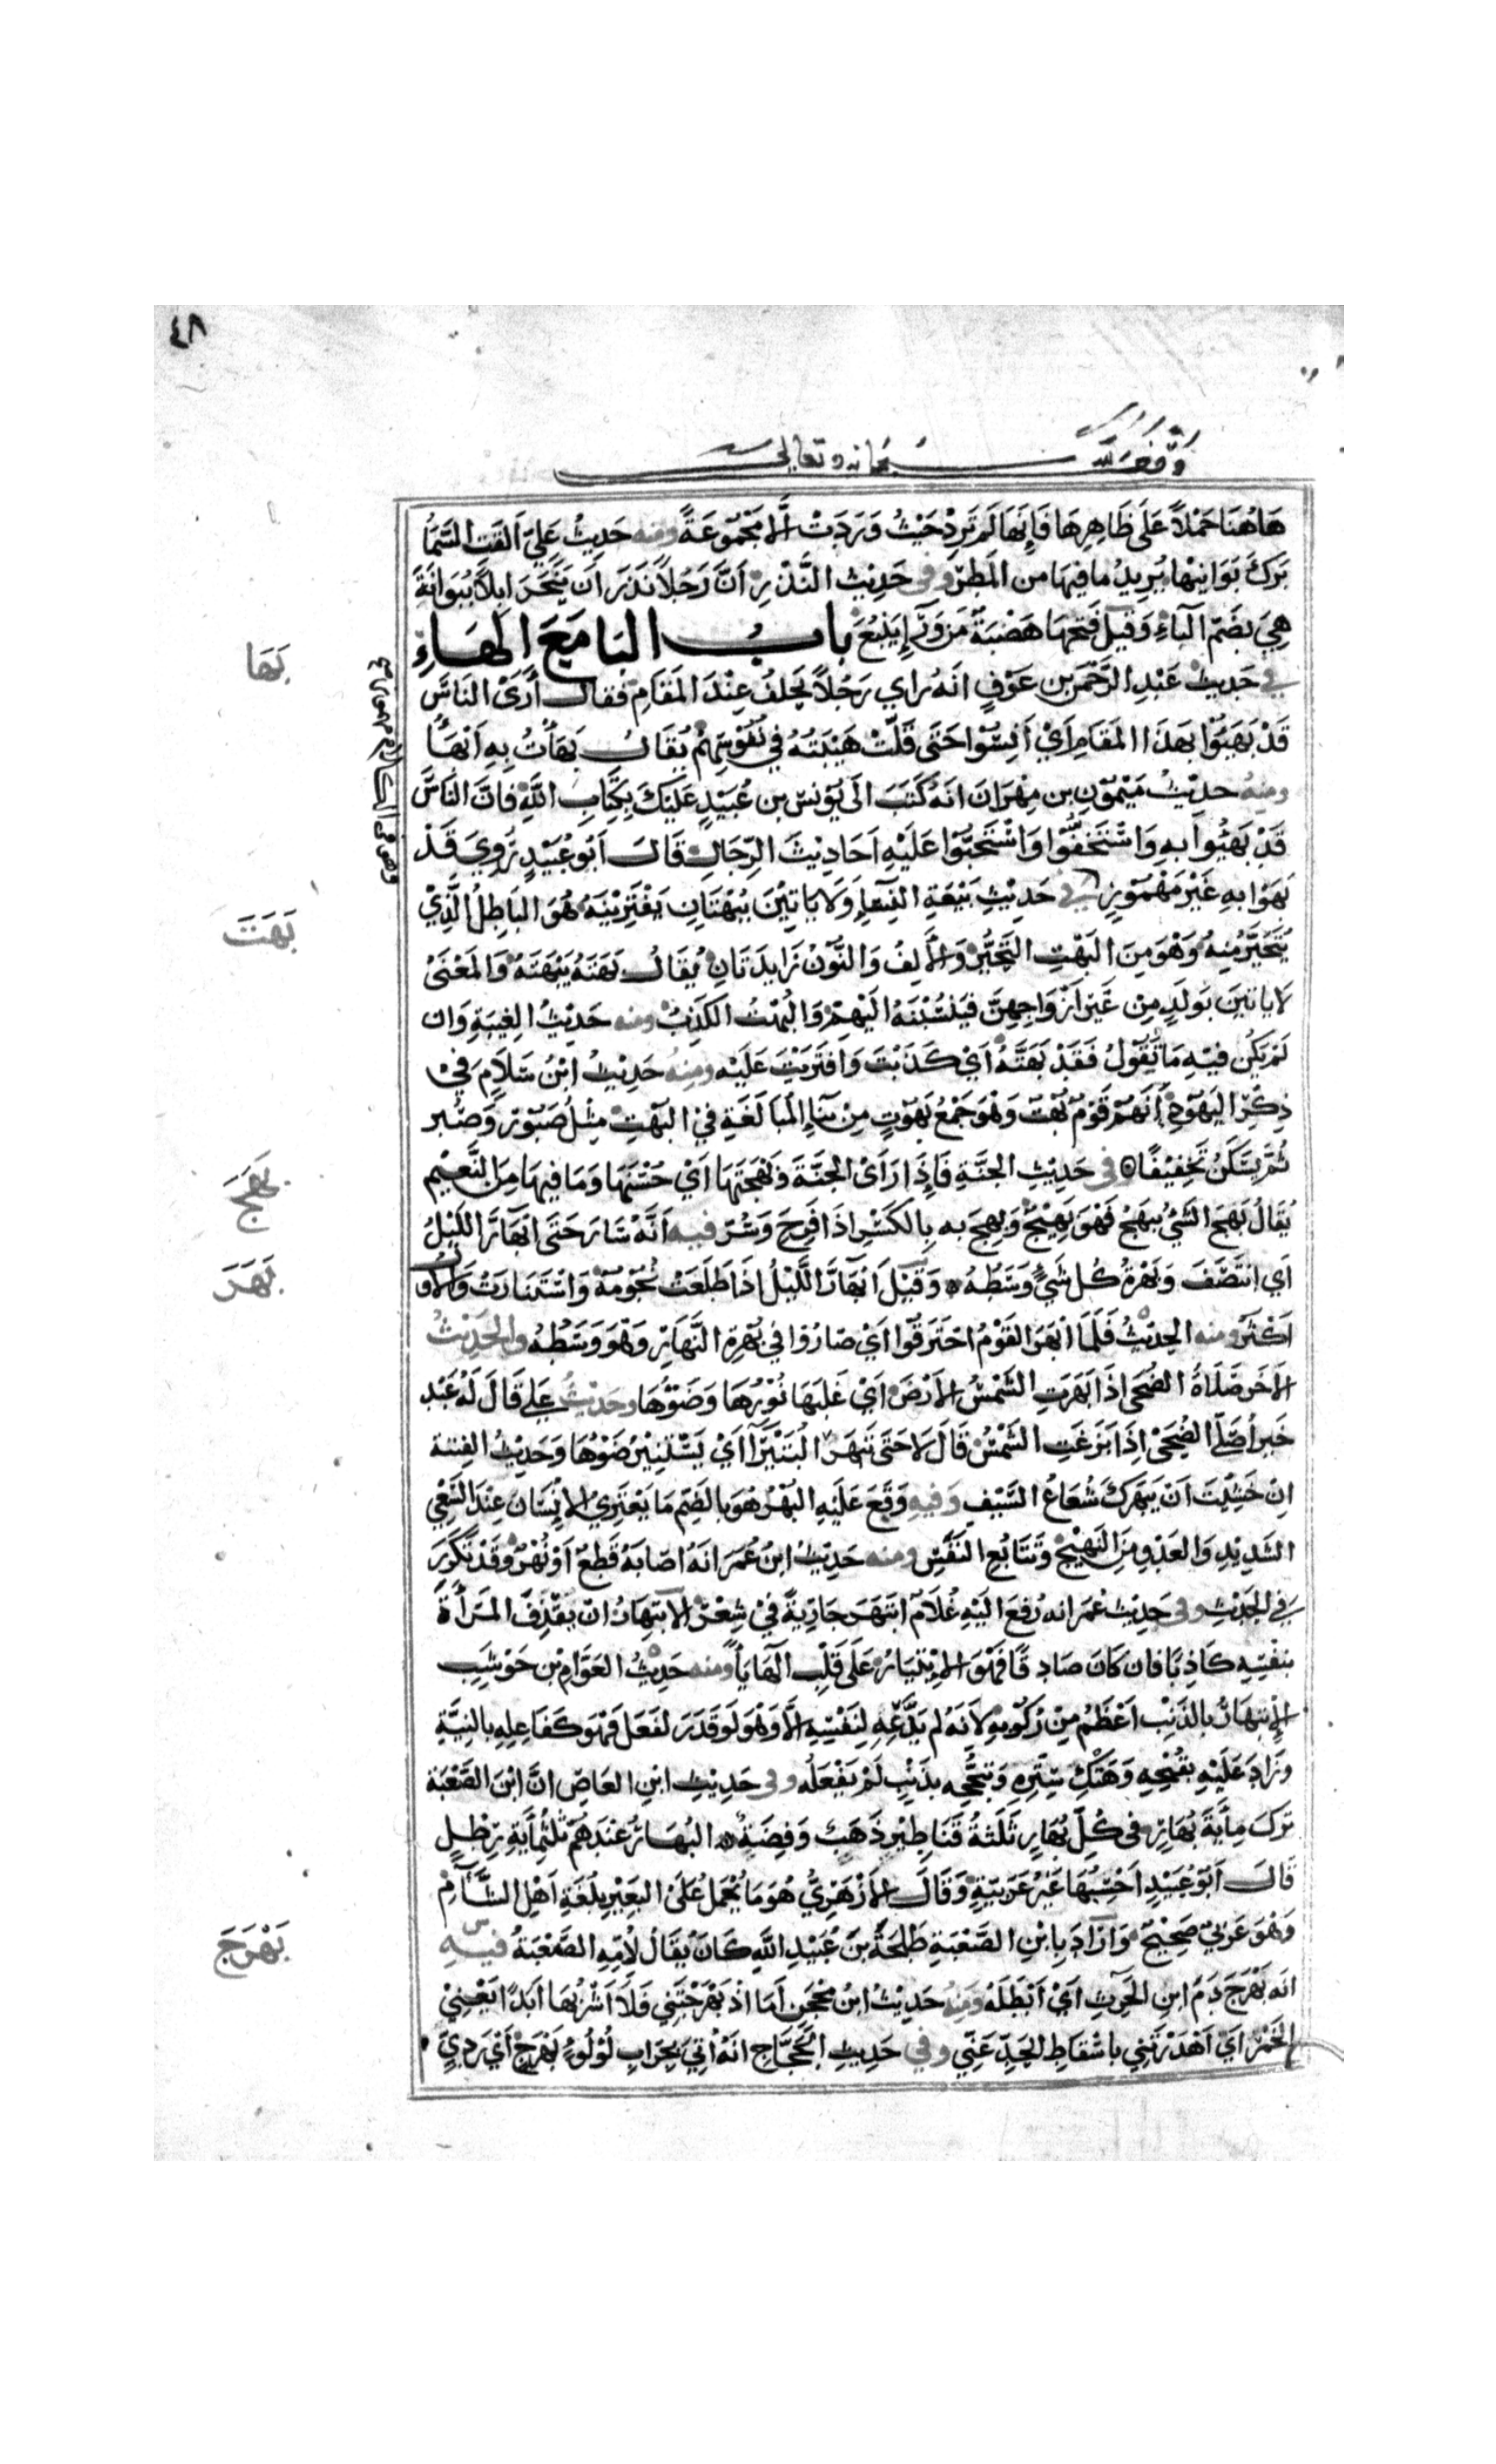 ٤٨
وقف لله سبحانه وتعالى
هَاهُنَا حَمْلاً عَلَى ظَاهِرِهَا فَإِنَّهَا لَمْ تَرِدْ حَيْثُ وَرَدَتْ إلَّا مَجْمُوعَةً ومنه حَدِيثُ عَلِيّ ألقَت السَّمَاُ
بَرَكَ بَوَانِيْهَا يُرِيدُ مَا فِيهَا مِن المَطَرِ وفى حَدِيث النَّذْرِ أنَّ رَجُلًا نَذَرَ أن يَنْحَرَ ابِلاً بِبُوَانَةَ
هِيَ بِضَمّ البَاءِ وَقِيلَ فَتحِهَا هَضْبَةٌ مِنْ وَرَاءِ يَنْبُعَ بابُ البَا مَعَ الهَاءِ
بَهَا
في حَدِيث عَبْدِ الرَّحْمَنِ بن عَوْفٍ انَهُ راي رَجُلاً يَحلفُ عِنْدَ المَقَامِ فقال أرَى النَّاسَ
قَدْ بَهَئُوْا بِهَذَا المَقَامِ أيْ أنِسُوْا حَتَى قَلَّتْ هَيْبَتُهُ فِي نُفُوسِهِمْ يُقَالُ بَهَأْتُ بِهِ أبْهَأُ
ومِنهُ حدِيْثُ مَيْمُوْنِ بن مِهْرَانَ انَهُ كَتَبَ الَى يُوْنسَ بن عُبَيْدٍ عَلَيْكَ بِكِتَابِ اللَّهِ فَاِنَّ النَّاسَ
قَدْ بَهَئُوا بِهِ وَاسْتَخَفُّوْا وَاسْتَحَبُّوْا عَلَيْهِ أحَادِيْثَ الرِّجَالِ قَالَ أبُو عُبَيْدٍ رُوِيَ قَدْ
بَهَوْا بِهِ غَيْرَ مَهْمُوْزٍ في حَدِيْثِ بَيْعَةِ النِّسَاءِ وَلا يَاتِيْنَ بِبُهْتَانٍ يَفْتَرِيْنَهُ هُوَ البَاطِلُ الَّذِيْ
بَهَتَ
يُتَحَيَّرُ مِنهُ وَهُوَ مِنَ البَهْتِ التَّحَيُّرِ وَالألِفُ وَالنُّوْنُ زَايِدَتَانِ يُقَالُ بَهَتَهُ يَبْهَتُهُ وَالمَعْنَىْ
لا يَاتِينَ بِوَلَدٍ مِن غَيْرِ أزْوَاجِهِنَّ فَيَنْسُبْنَهُ الَيْهِمْ وَالبُهْتُ الكَذِبُ ومنه حَدِيْثُ الغِيْبَةِ وَان
لَمْ يَكُن فِيْهِ مَا تَقُوْلُ فَقَدْ بَهَتَّهُ أيْ كَذَبْتَ وَافتَرَيْتَ عَلَيْهِ ومِنهُ حَدِيثُ ابْنُ سَلَامٍ فِيْ
ذِكْرِ اليَهُوْدِ أنَهُمْ قَوْمٌ بُهْتٌ وَهُوَ جَمْعُ بَهُوْتٍ مِنْ بِنَاءِ المُبَالَغَةِ فِيْ البَهْتِ مِثْلُ صَبُوْرٍ وَصُبُرٍ
ثُمَّ يُسَكَّنُ تَخْفِيْفًا فى حَدِيْثِ الجَنَّةِ فَاِذَا رَأَىْ الجَنَّةَ وَبَهْجَتَهَا أيْ حُسْنَهَا وَمَا فِيهَا مِنَ النَّعِيْمِ
بَهَجَ
يُقَالُ بَهُجَ الشَّيْ يَبْهُجُ فَهُوَ بَهِيْجٌ وَبَهِجَ بِهِ بِالكَسْرِ اذَا فَرِحَ وَسُرَّ فيه أنَّهُ سَارَ حَتَى ابْهَارَّ اللَيْلُ
بَهَرَ
أي انْتَصَفَ وَبُهْرَةُ كُلِ شَيْءٍ وَسَطُهُ وَقِيْلَ ابْهَارَّ اللَّيْلُ اذَا طَلَعَتْ نُجُوْمُهُ وَاسْتَنَارَتْ وَالأول
أكْثَرُ ومنه الحدِيْثُ فَلَمَّا ابْهَرَ القَوْمُ احْتَرَقُوْا أيْ صَارُوْا فِي بُهْرَةِ النَّهَارِ وَهُوَ وَسَطُهُ والحَدِيْثُ
الأخَرُ صَلَاةُ الضُحَى إذَا بَهَرَتِ الشَّمْسُ الأرْضَ أيْ غَلَبَهَا نُوْرُهَا وَضَوْؤُهَا وحَدِيْثُ عَلِي قَالَ لَهُ عَبْدُ
خَيْرٍ أُصَلِّي الضُّحَىْ إذَا بَزَغَتِ الشَّمْسُ قَالَ لَا حَتَى تَبْهَرَ البُتَيْرَآءُ أيْ يَسْتَنِيْرَ ضَوْؤُهَا وَحَدِيْثُ الفِتْنَةِ
انْ خَشِيْتَ أنْ يَبْهَرَكَ شُعَاعُ السَّيْفِ وَفِيهِ وَقَعَ عَلَيْهِ البُهْرُ هُوَ بِالضَمِّ مَا يَعْتَرِيْ الإنْسَانَ عِنْدَ السَّعْيِ
الشَدِيْدِ وَالعَدْوِ مِنَ النَهِيْجِ وَتَتَابُعِ النَفَسِ ومنه حَدِيْثُ ابْنُ عُمَرَ انَهُ اصَابَهُ قُطْعٌ أوْ بُهْرٌ وَقَدْ تَكَرَّرَ
فِي الحَدِيْثِ وفى حَدِيْثِ عُمَرَ انه رُفِعَ الَيْهِ غُلَامٌ ابْتَهَرَ جَارِيَةً فِيْ شِعْرِهِ الابْتِهَارُ ان يَقْذِفَ المَرْأَةَ
بِنَفْسِهِ كَاذِبًا فان كَانَ صَادِقًا فَهُوَ الابْتِيَارُ عَلَى قَلْبِ الهَاءِ يَاءً ومنه حَدِيْثُ العَوَّامِ بْن حَوْشَبٍ
الإبْتِهَارُ بِالذَنْبِ أعْظَمُ مِنْ رُكُوْبِهِ لِأَنَهُ لم يَدَّعِهِ لِنَفْسِهِ الَّا وَهُوَ لَوْ قَدَرَ لَفَعَلَ فَهُوَ كَفَاعِلِهِ بالنِيَّةِ
وَزَادَ عَلَيْهِ بِقُبْحِهِ وَهَتْكِ سِتْرِهِ وَتَبَجُّحِهِ بِذَنْبٍ لَمْ يَفْعَلْهُ وفى حَدِيْثِ ابْنِ العَاصِ انَّ ابْنَ الصَّعْبَة
تَرَكَ مِأيَةَ بُهَارٍ فى كُلِّ بُهَارٍ ثَلَثَةُ قَنَاطِيْرَ ذَهَبٍ وَفِضَةٍ البُهَارُ عِنْدَهُمْ ثَلثُمِأيَةِ رِطْلٍ
قَالَ أبُوْ عُبَيْدٍ أحْسِبُهَا غَيْرَ عَرَبِيَّةٍ وَقَالَ الأزْهَرِيُّ هُوَ مَا يُحْمَلُ عَلَىْ البَعِيْرِ بِلُغَةِ أهْلِ الشَّأْمِ
وَهُوَ عَرَبيّ صَحِيْحٌ وَارَادَ بِابْنِ الصَّعْبَةِ طَلْحَةَ بْنَ عُبَيْدِ اللَّهِ كَانَ يُقَالُ لأُمِّهِ الصَّعْبَةُ فيه
بَهْرَجَ
انَه بَهْرَجَ دَمَ ابْنِ الحَرِثِ أيْ أبْطَلَهُ وَمِنهُ حَدِيْثُ ابْنُ مِحْجَنٍ أمَا اذْ بَهْرَجْتَنِي فَلَا أشْرَبُهَا أبَدًا يَعْنِيْ
الخَمْرَ أيْ أهْدَرْتَنِي باسْقَاطِ الحَدِّ عَنِّي وفي حَدِيْثِ الحَجَّاجِ انَهُ أُتِيَ بِجِرَابِ لُؤْلُوءٍ بَهْرَجٍ أيْ رَدِيءٍ